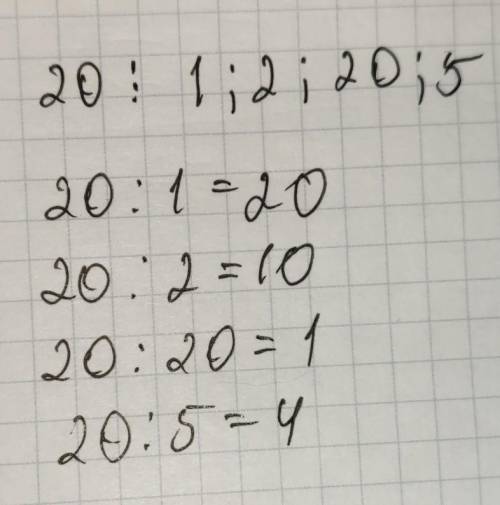 20 ⋮ 1; 2; 20; 5
20 : 1 = 20
20 : 2 = 10
20 : 20 = 1
20 : 5 = 4